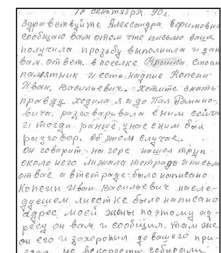 17 сентября, 90.
Здравствуйте Александра Ефимовна
сообщаю вам о том что письмо ваше
получила просьбу выполнила и даю
вам ответ в поселке стоит
памятник и есть надпись Копейн
Иван, Васильевич. Хотите знать
правду ходила я и до Пол
вича, разговаривала с ним сейчас
и тогда раньше, у нас с ним был
разговор, об этом случае.
он говорит, на горе нашел труп
около него лежала тетрадь и письмо
от вас а в тетраде было написано
Копейн Иван, Васильевич на сле-
дующем листке было написано
адрес, моей жены поэтому ад-
ресу он вам и сообщил, там же
он его и захоронил до вашего при-
езда, но вскорости собирали